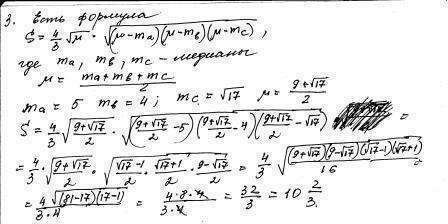 3. Есть формула
S = 4/3 √μ · √((μ-ma)(μ-mв)(μ-mc)) ,
где ma, mв, mc - медианы
μ = (ma+mв+mc)/2
ma = 5 mв = 4; mc = √17 μ = (9+√17)/2
S = 4/3 √((9+√17)/2) · √(((9+√17)/2 - 5)((9+√17)/2 - 4)((9+√17)/2 - √17)) =
= 4/3 · √((9+√17)/2) · √((√17-1)/2 · (√17+1)/2 · (9-√17)/2) = 4/3 √((9+√17)(9-√17)(√17-1)(√17+1)/16)
= 4√((81-17)(17-1))/(3·4) = (4·8·4)/(3·4) = 32/3 = 10 2/3.